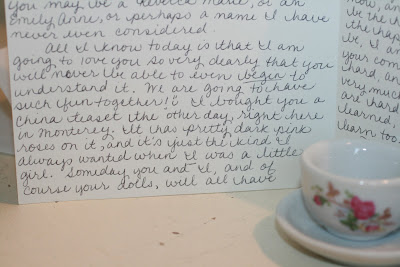 you may be a Rebecca Marie, or an
Emily Anne, or perhaps a name I have
never even considered.
All I know today is that I am
going to love you so very dearly that you
will never be able to even begin to
understand it. We are going to have
such fun together! I bought you a
china teaset the other day, right here
in Monterey. It has pretty, dark pink
roses on it, and it's just the kind I
always wanted when I was a little
girl. Someday you and I, and of
course your dolls, will all have
now, an
be the
the
be. I
your com
hard, an
very muc
are hard
learned,
learn too.